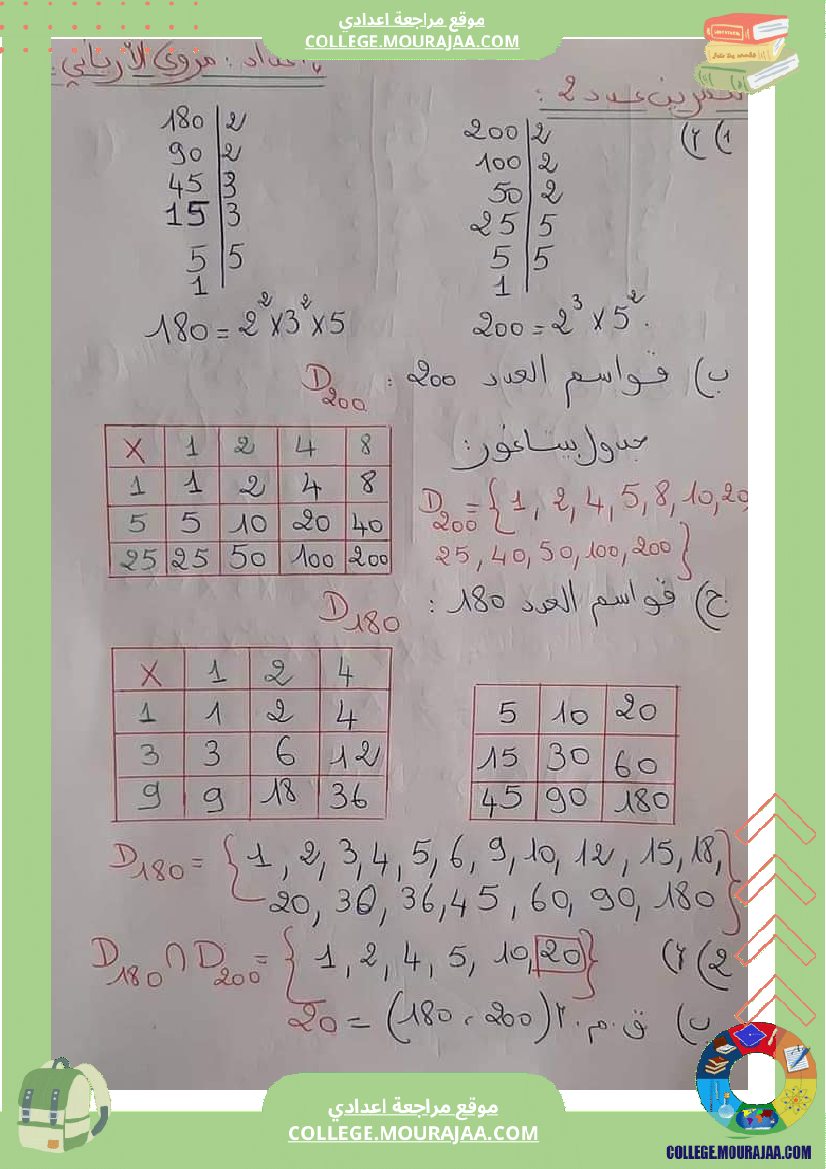 موقع مراجعة اعدادي
COLLEGE.MOURAJAA.COM
إعداد : مروى الأرياني
تمرين عدد 2 :
1) أ)
200 2
100 2
50 2
25 5
5 5
1
200 = 2³ × 5².
180 2
90 2
45 3
15 3
5 5
1
180 = 2² × 3² × 5
ب) قواسم العدد 200 : D₂₀₀
جدول بيتاغور:
× 1 2 4 8
1 1 2 4 8
5 5 10 20 40
25 25 50 100 200
D₂₀₀ = {1, 2, 4, 5, 8, 10, 20
25, 40, 50, 100, 200}
ج) قواسم العدد 180 : D₁₈₀
× 1 2 4
1 1 2 4
3 3 6 12
9 9 18 36
5 10 20
15 30 60
45 90 180
D₁₈₀ = {1, 2, 3, 4, 5, 6, 9, 10, 12, 15, 18,
20, 30, 36, 45, 60, 90, 180}
2) أ) D₁₈₀ ∩ D₂₀₀ = {1, 2, 4, 5, 10, 20}
ب) ق.م.أ (200 ، 180) = 20
موقع مراجعة اعدادي
COLLEGE.MOURAJAA.COM
COLLEGE.MOURAJAA.COM